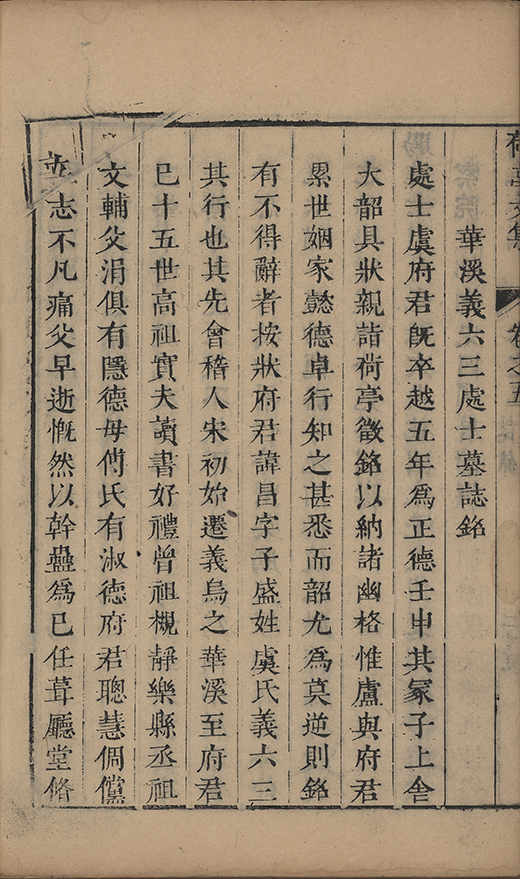 荷亭文集 卷之五
華溪義六三處士墓誌銘
處士虞府君既卒越五年爲正德壬申其冢子上舍
大韶具狀親詣荷亭徵銘以納諸幽格惟盧與府君
累世姻家懿德卓行知之甚悉而韶尤爲莫逆則銘
有不得辭者按狀府君諱昌字子盛姓虞氏義六三
其行也其先會稽人宋初始遷義烏之華溪至府君
已十五世高祖實夫讀書好禮曾祖槻靜樂縣丞祖
文輔父涓俱有隱德母傅氏有淑德府君聰慧倜儻
志不凡痛父早逝慨然以幹蠱爲己任葺廳堂脩